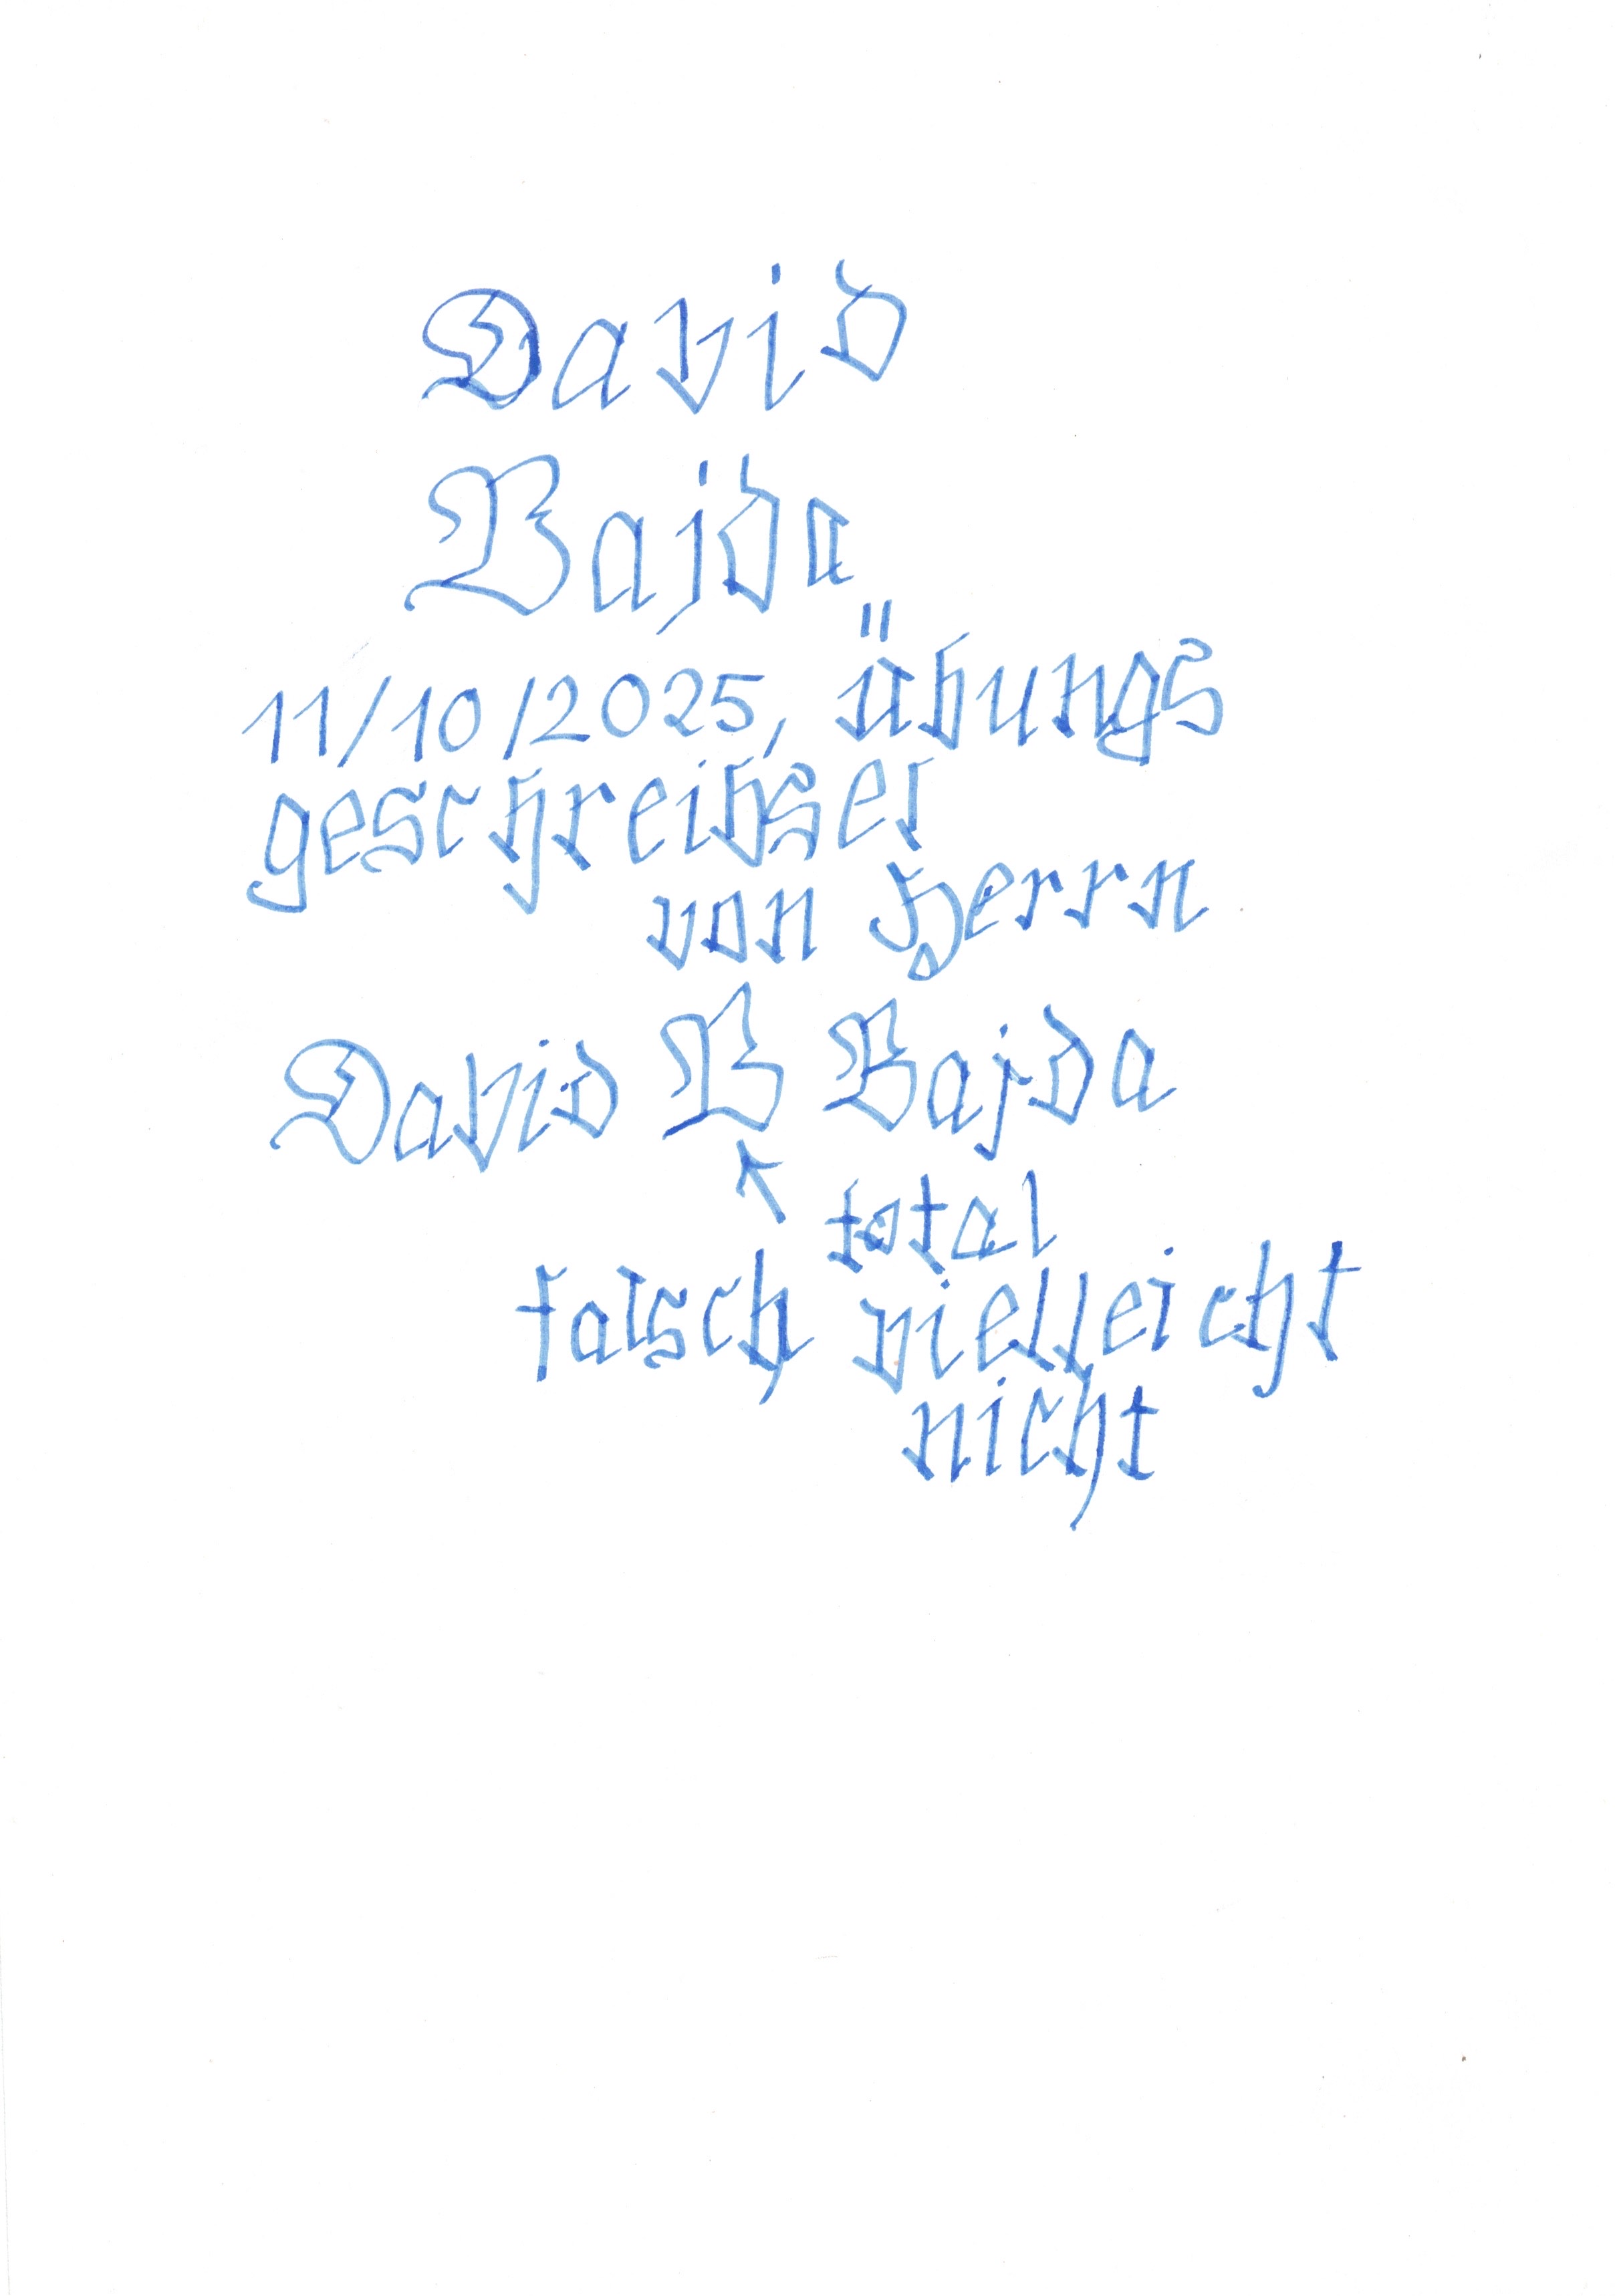 David
Bajda
11/10/2025, übungs
geschreibsel
von Herrn
David B Bajda
total
falsch vielleicht
nicht